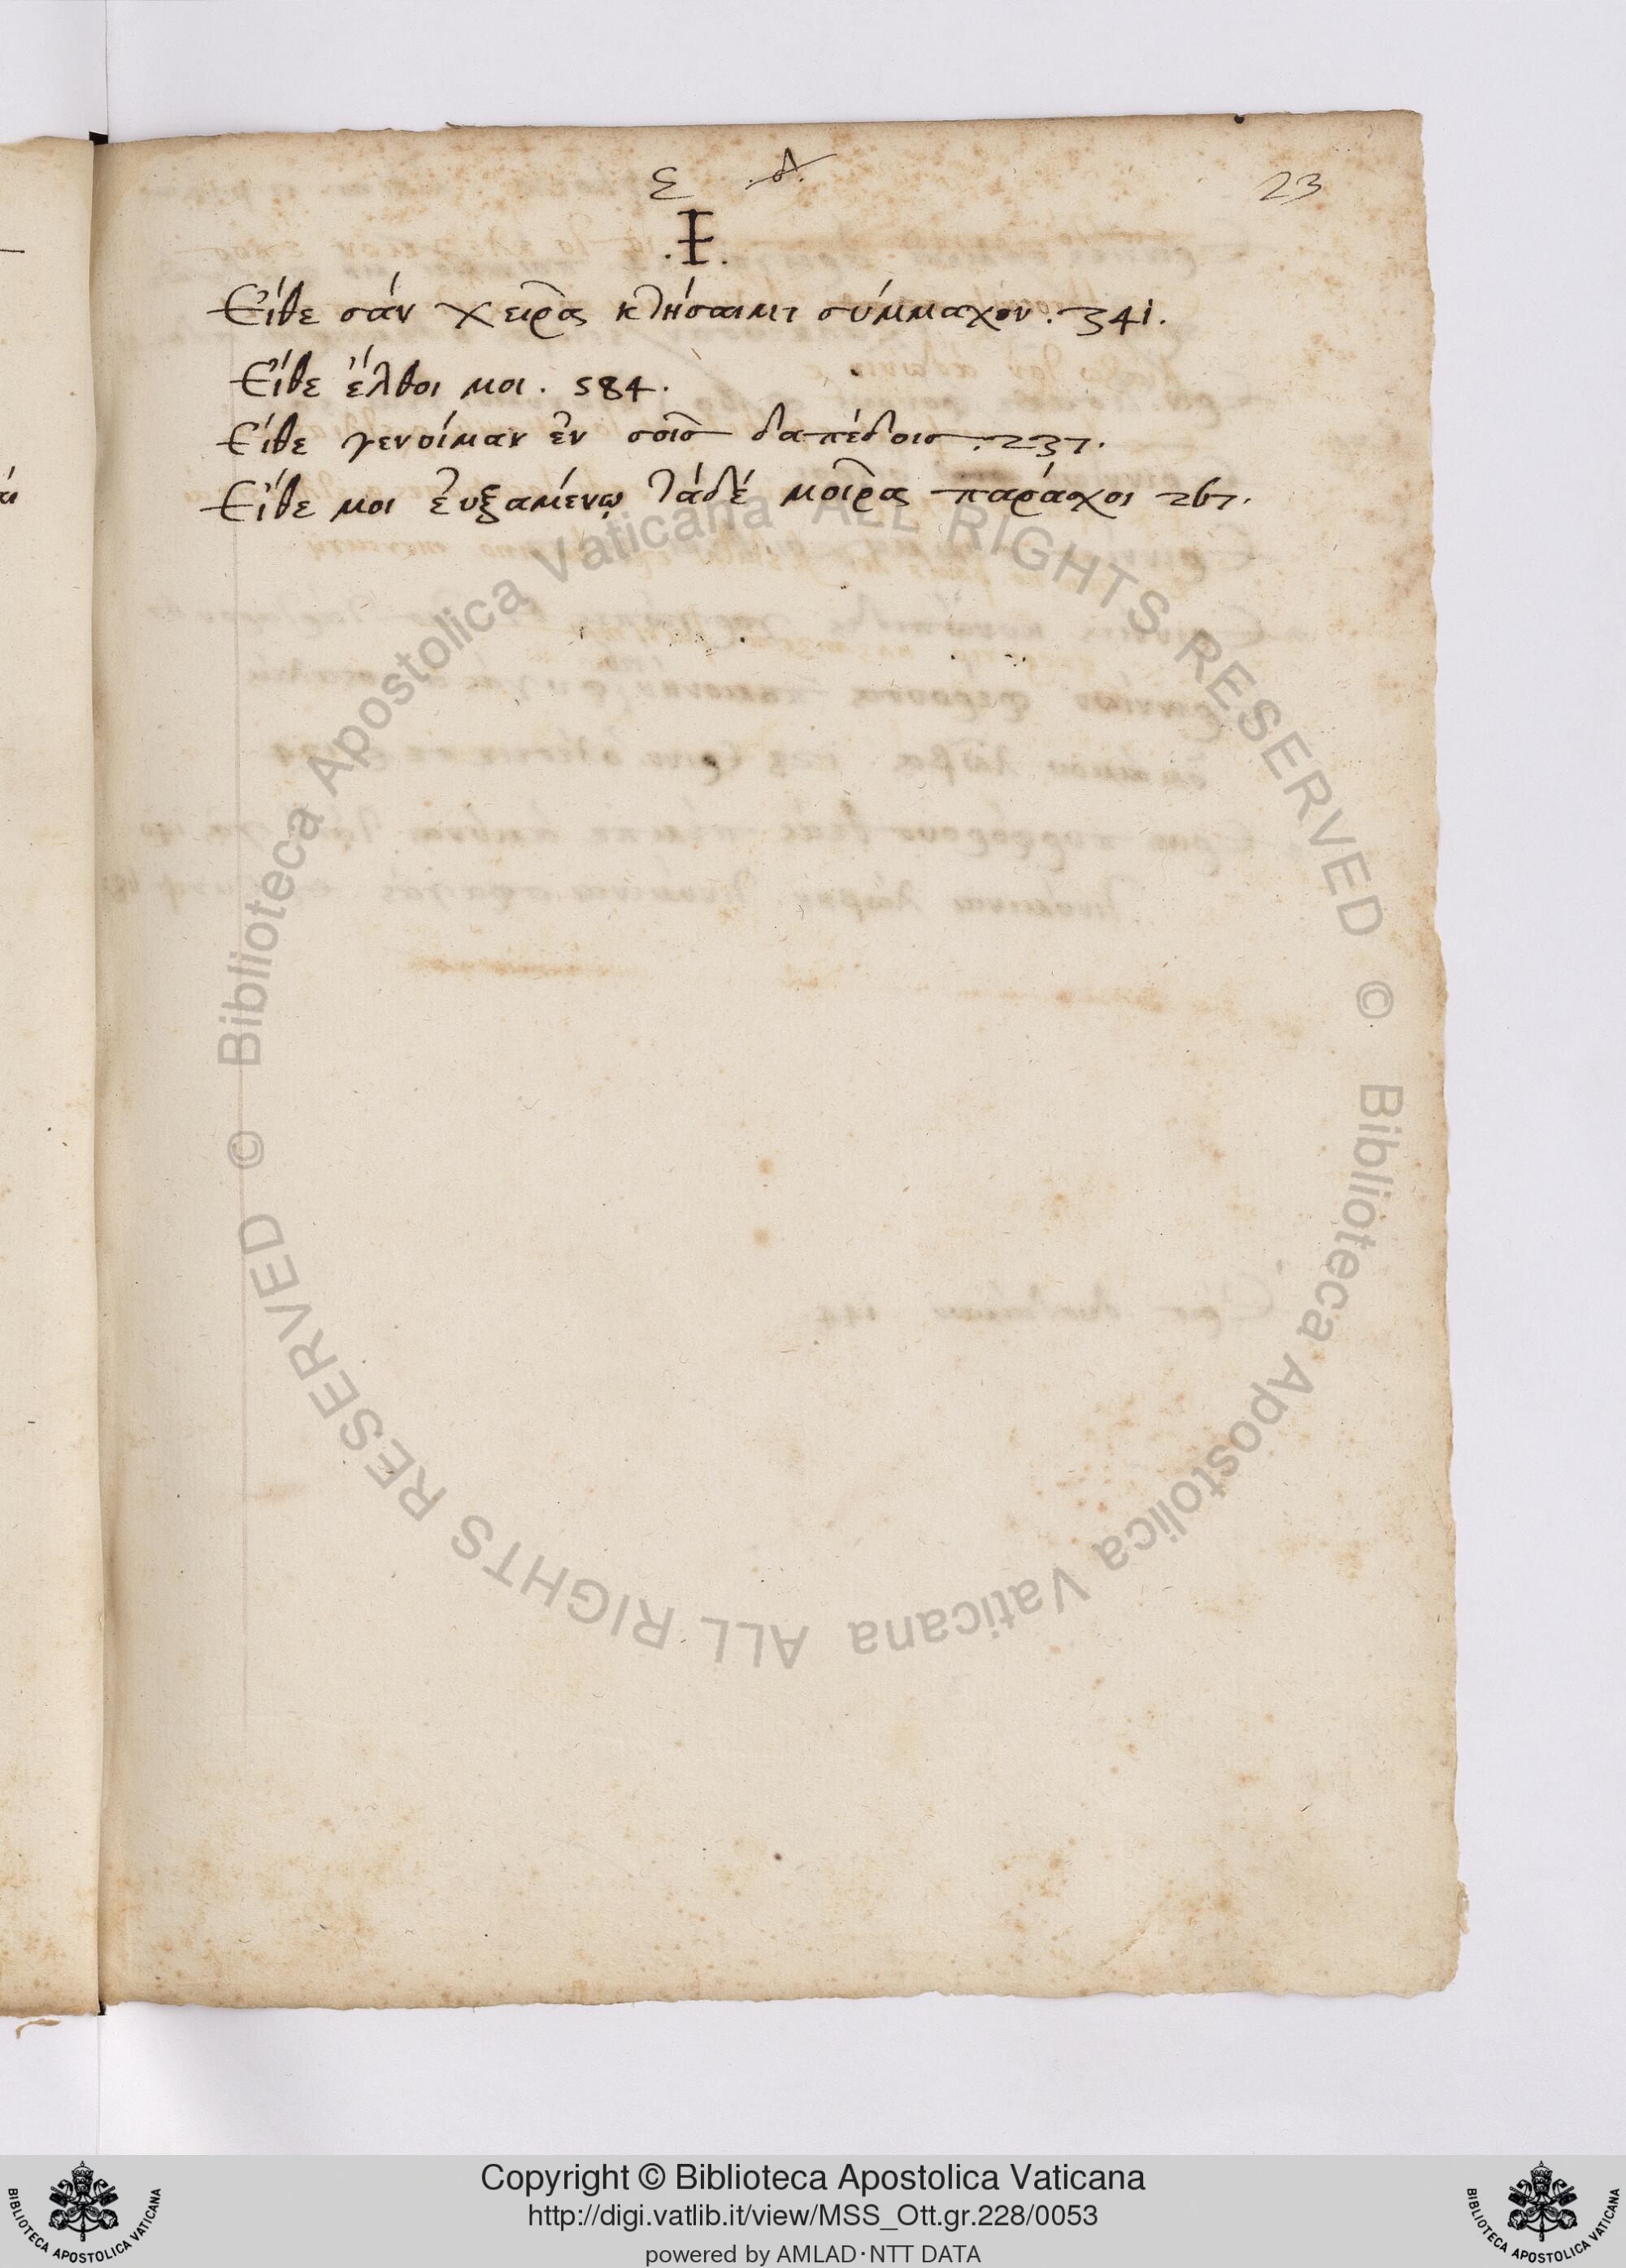 ε δ 23
.E.
Είθε σάν χείρας κλήσαιμι σύμμαχον. 341.
Είθε έλθοι μοι. 584.
Είθε γενοίμαν ἐν σοῖσ δαπέδοισ. 237.
Είθε μοι ἐυξαμένῳ τάδέ μοῖρας παράσχοι 267.
© Biblioteca Apostolica Vaticana ALL RIGHTS RESERVED
© Biblioteca Apostolica Vaticana ALL RIGHTS RESERVED
Copyright © Biblioteca Apostolica Vaticana
http://digi.vatlib.it/view/MSS_Ott.gr.228/0053
powered by AMLAD·NTT DATA
BIBLIOTECA APOSTOLICA VATICANA
BIBLIOTECA APOSTOLICA VATICANA